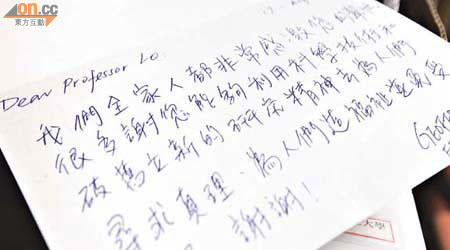 on.cc
東方互動
Dear Professor Lo:
我們全家人都非常感激您
很多謝您能夠利用科學技術和
破舊立新的研究精神去為人們
尋求真理、為人們造福祉
謝謝!
大學